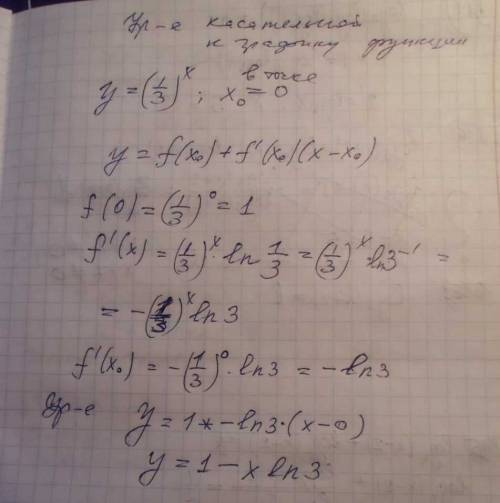 Ур-е касательной
к графику функции
в точке
y = (1/3)^x ; x₀ = 0
y = f(x₀) + f'(x₀)(x - x₀)
f(0) = (1/3)^0 = 1
f'(x) = (1/3)^x · ln 1/3 = (1/3)^x · ln3^-1 =
= -(1/3)^x ln 3
f'(x₀) = -(1/3)^0 · ln3 = -ln3
Ур-е y = 1 * -ln3·(x-0)
y = 1 - x ln3